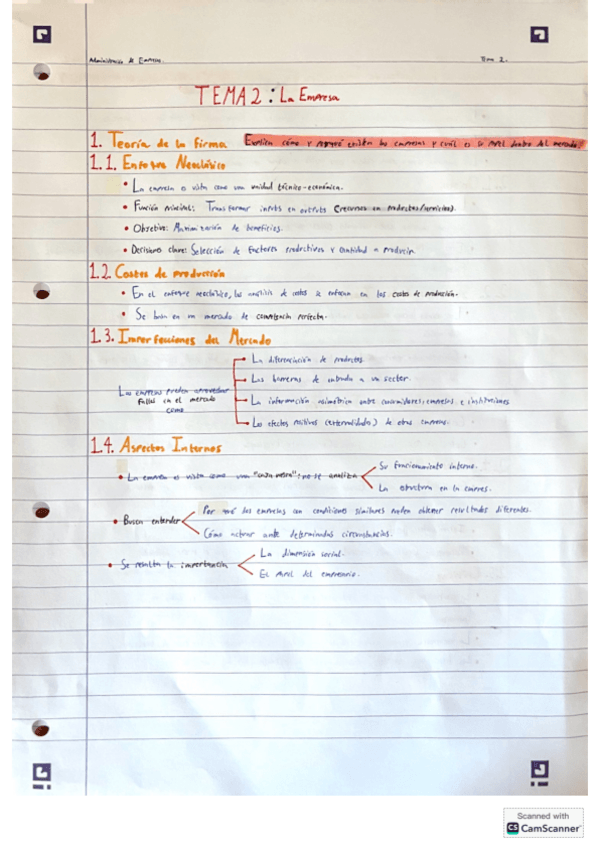 Administración de Empresas. Tema 2.
TEMA 2: La Empresa
1. Teoría de la firma Explica cómo y porqué existen las empresas y cuál es su papel dentro del mercado.
1.1. Enfoque Neoclásico
• La empresa es vista como una unidad técnico-económica.
• Función principal: Transformar inputs en outputs (recursos en productos/servicios).
• Objetivo: Maximización de beneficios.
• Decisiones clave: Selección de factores productivos y cantidad a producir.
1.2. Costes de producción
• En el enfoque neoclásico, los análisis de costes se enfocan en los costes de producción.
• Se basan en un mercado de competencia perfecta.
1.3. Imperfecciones del Mercado
Las empresas pueden aprovechar fallos en el mercado como
La diferenciación de productos.
Las barreras de entrada a un sector.
La información asimétrica entre consumidores, empresas e instituciones
Los efectos positivos (externalidades) de otras empresas.
1.4. Aspectos Internos
• La empresa es vista como una "caja negra": no se analiza
Su funcionamiento interno.
La estructura en la empresa.
• Buscan entender
Por qué las empresas con condiciones similares pueden obtener resultados diferentes.
Cómo actuar ante determinadas circunstancias.
• Se resalta la importancia
La dimensión social.
El papel del empresario.
Scanned with
CS CamScanner